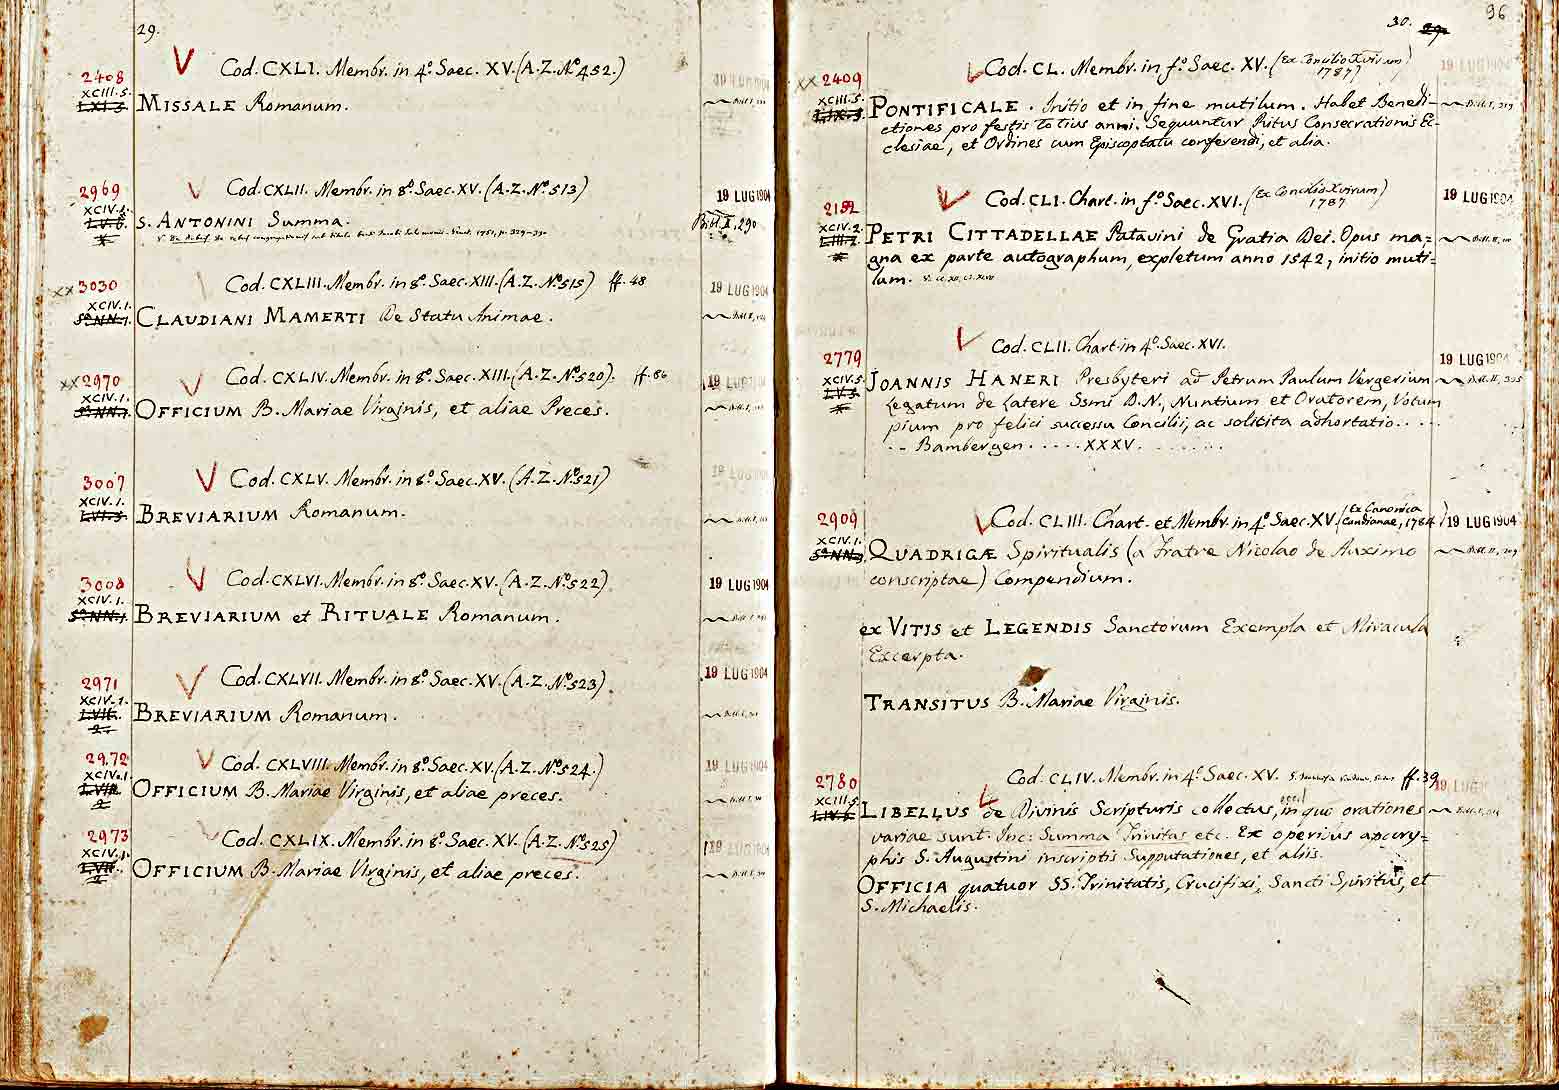 29.
Cod. CXLI. Membr. in 4º. Saec. XV. (A.Z. Nº 452.)
2408
XCIII. 5.
MISSALE Romanum.
2969
Cod. CXLII. Membr. in 8º. Saec. XV. (A.Z. Nº. 513)
19 LUG 1904
XCIV. 1.
S. ANTONINI Summa.
Bibl. II, 290
xx 3030
Cod. CXLIII. Membr. in 8º. Saec. XIII. (A.Z. Nº 515) ff. 48
19 LUG 1904
XCIV. 1.
CLAUDIANI MAMERTI De Statu Animae.
xx 2970
Cod. CXLIV. Membr. in 8º. Saec. XIII. (A.Z. Nº. 520). ff. 86
19 LUG
XCIV. 1.
OFFICIUM B. Mariae Virginis, et aliae Preces.
3007
Cod. CXLV. Membr. in 8º. Saec. XV. (A.Z. Nº. 521)
19 LUG
XCIV. 1.
BREVIARIUM Romanum.
3008
Cod. CXLVI. Membr. in 8º. Saec. XV. (A.Z. Nº. 522)
19 LUG 1904
XCIV. 1.
BREVIARIUM et RITUALE Romanum.
2971
Cod. CXLVII. Membr. in 8º. Saec. XV. (A.Z. Nº. 523)
19 LUG 1904
XCIV. 1.
BREVIARIUM Romanum.
2972
Cod. CXLVIII. Membr. in 8º. Saec. XV. (A.Z. Nº. 524.)
19 LUG 1904
XCIV. 1.
OFFICIUM B. Mariae Virginis, et aliae preces.
2973
Cod. CXLIX. Membr. in 8º. Saec. XV. (A.Z. Nº. 525)
19 LUG 1904
XCIV. 1.
OFFICIUM B. Mariae Virginis, et aliae preces.
96
30. 29.
xx 2409
Cod. CL. Membr. in fº. Saec. XV. (Ex Concilio Xvirum) 1787
19 LUG 1904
XCIII. 5.
PONTIFICALE. Initio et in fine mutilum. Habet Benedi-
ctiones pro festis totius anni. Sequuntur Ritus Consecrationis Ec-
clesiae, et Ordines cum Episcoptatu conferendi, et alia.
Cod. CLI. Chart. in fº. Saec. XVI. (Ex Concilio Xvirum) 1787
19 LUG 1904
XCIV. 2.
PETRI CITTADELLAE Patavini de Gratia Dei. Opus ma=
gna ex parte autographum, expletum anno 1542, initio muti=
lum.
2779
Cod. CLII. Chart. in 4º. Saec. XVI.
19 LUG 1904
XCIV. 5.
JOANNIS HANERI Presbyteri ad Petrum Paulum Vergerium
Legatum de Latere Ssmi D. N., Nuntium et Oratorem, Votum
pium pro felici successu Concilii, ac solicita adhortatio. . . .
. . Bambergen . . . . . XXXV. . . . . . . .
2909
Cod. CLIII. Chart. et Membr. in 4º. Saec. XV. (Ex Canonica Candianae, 1784)
19 LUG 1904
XCIV. 1.
QUADRIGÆ Spiritualis (a Fratre Nicolao de Auximo
conscriptae) Compendium.
ex VITIS et LEGENDIS Sanctorum Exempla et Miracula
Excerpta.
TRANSITUS B. Mariae Virginis.
2780
Cod. CLIV. Membr. in 4º. Saec. XV. ff. 39
19 LUG
XCIII. 5.
LIBELLUS de Divinis Scripturis collectus, in quo orationes
variae sunt. Inc: Summa Trinitas etc. Ex operibus apocry=
phis S. Augustini inscriptis Supputationes, et aliis.
OFFICIA quatuor SS. Trinitatis, Crucifixi, Sancti Spiritus, et
S. Michaelis.